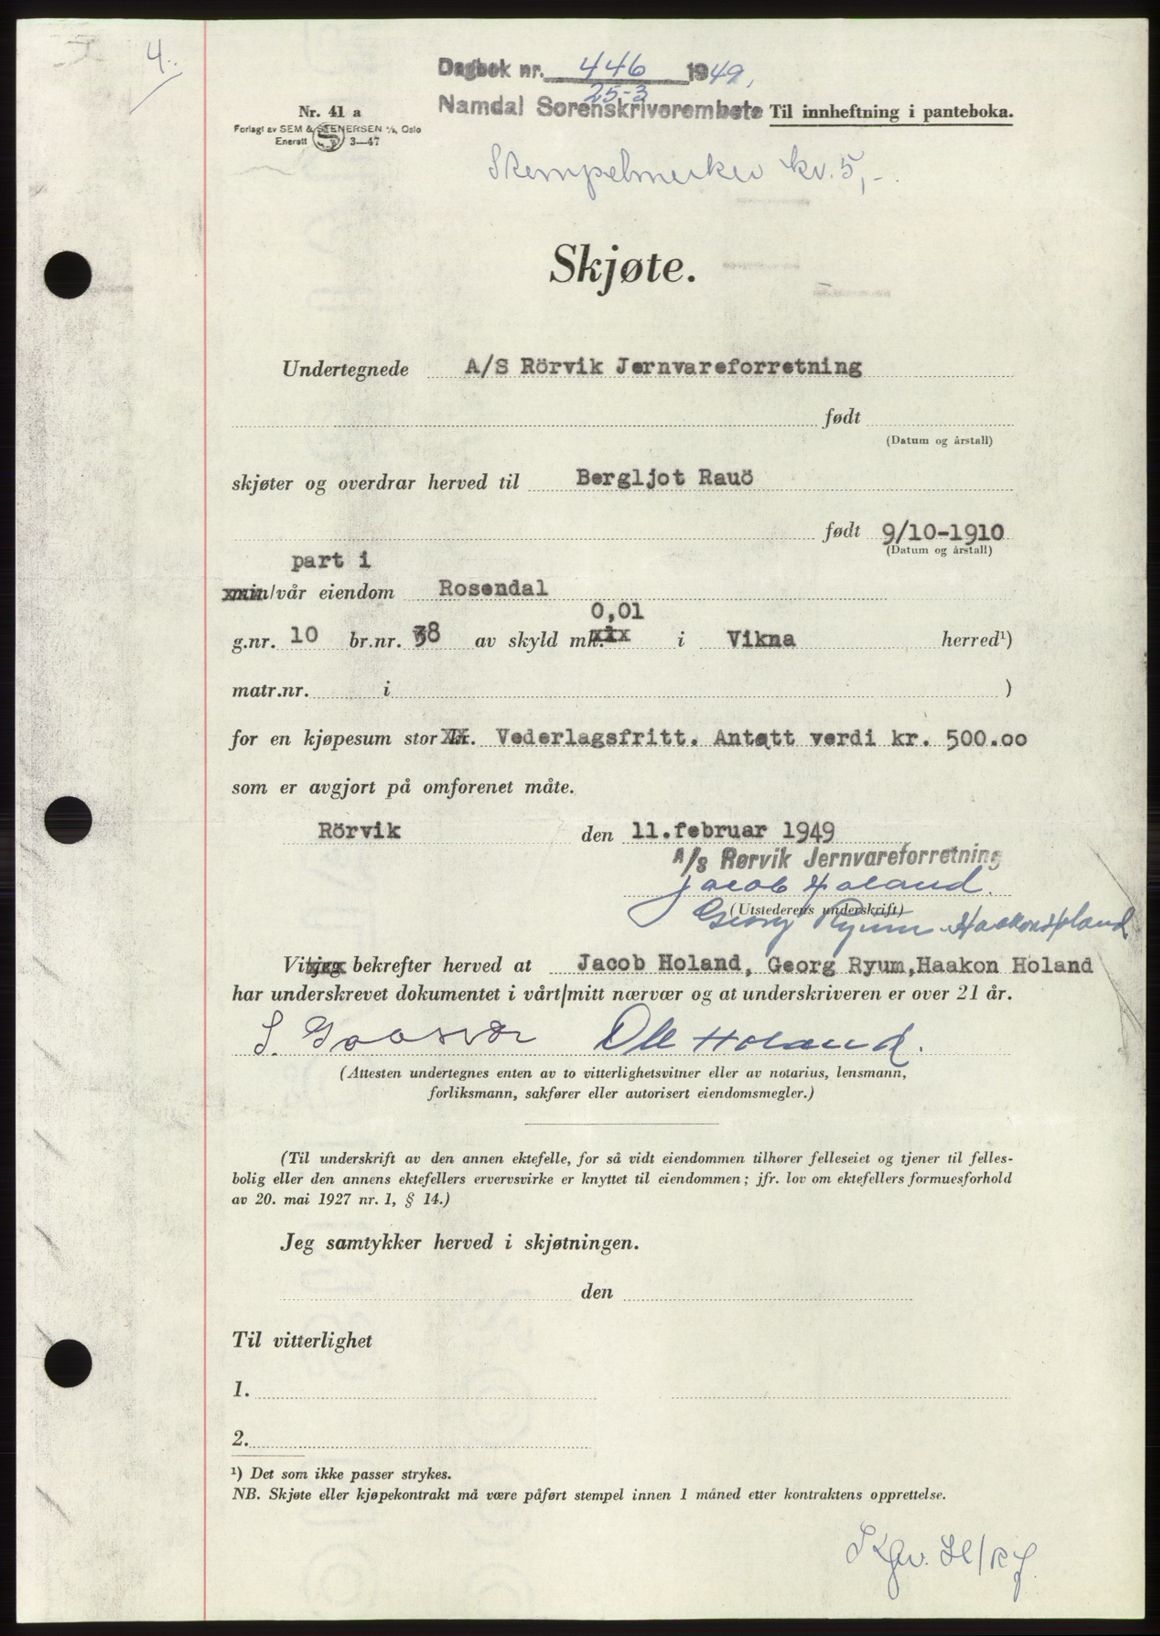 4.
Dagbok nr. 446 1949,
25-3
Namdal Sorenskriverembete Til innheftning i panteboka.
Nr. 41 a
Forlagt av SEM & STENERSEN A/S, Oslo
Enerett 3—47
Stempelmerker kr. 5,-.
Skjøte.
Undertegnede A/S Rörvik Jernvareforretning
født
(Datum og årstall)
skjøter og overdrar herved til Bergljot Rauö
født 9/10-1910
(Datum og årstall)
part i
min/vår eiendom Rosendal
0,01
g.nr. 10 br.nr. 38 av skyld mk. xxx i Vikna herred¹)
matr.nr. i )
for en kjøpesum stor kr. Vederlagsfritt. Antatt verdi kr. 500.oo
som er avgjort på omforenet måte.
Rörvik den 11.februar 1949
A/s Rørvik Jernvareforretning
Jacob Holand.
(Utstederens underskrift)
Georg Ryum Haakon Holand
Vi/jeg bekrefter herved at Jacob Holand, Georg Ryum,Haakon Holand
har underskrevet dokumentet i vårt/mitt nærvær og at underskriveren er over 21 år.
S. Ole Holand.
(Attesten undertegnes enten av to vitterlighetsvitner eller av notarius, lensmann,
forliksmann, sakfører eller autorisert eiendomsmegler.)
(Til underskrift av den annen ektefelle, for så vidt eiendommen tilhører felleseiet og tjener til felles-
bolig eller den annens ektefellers ervervsvirke er knyttet til eiendommen; jfr. lov om ektefellers formuesforhold
av 20. mai 1927 nr. 1, § 14.)
Jeg samtykker herved i skjøtningen.
den
Til vitterlighet
1.
2.
¹) Det som ikke passer strykes.
NB. Skjøte eller kjøpekontrakt må være påført stempel innen 1 måned etter kontraktens opprettelse.